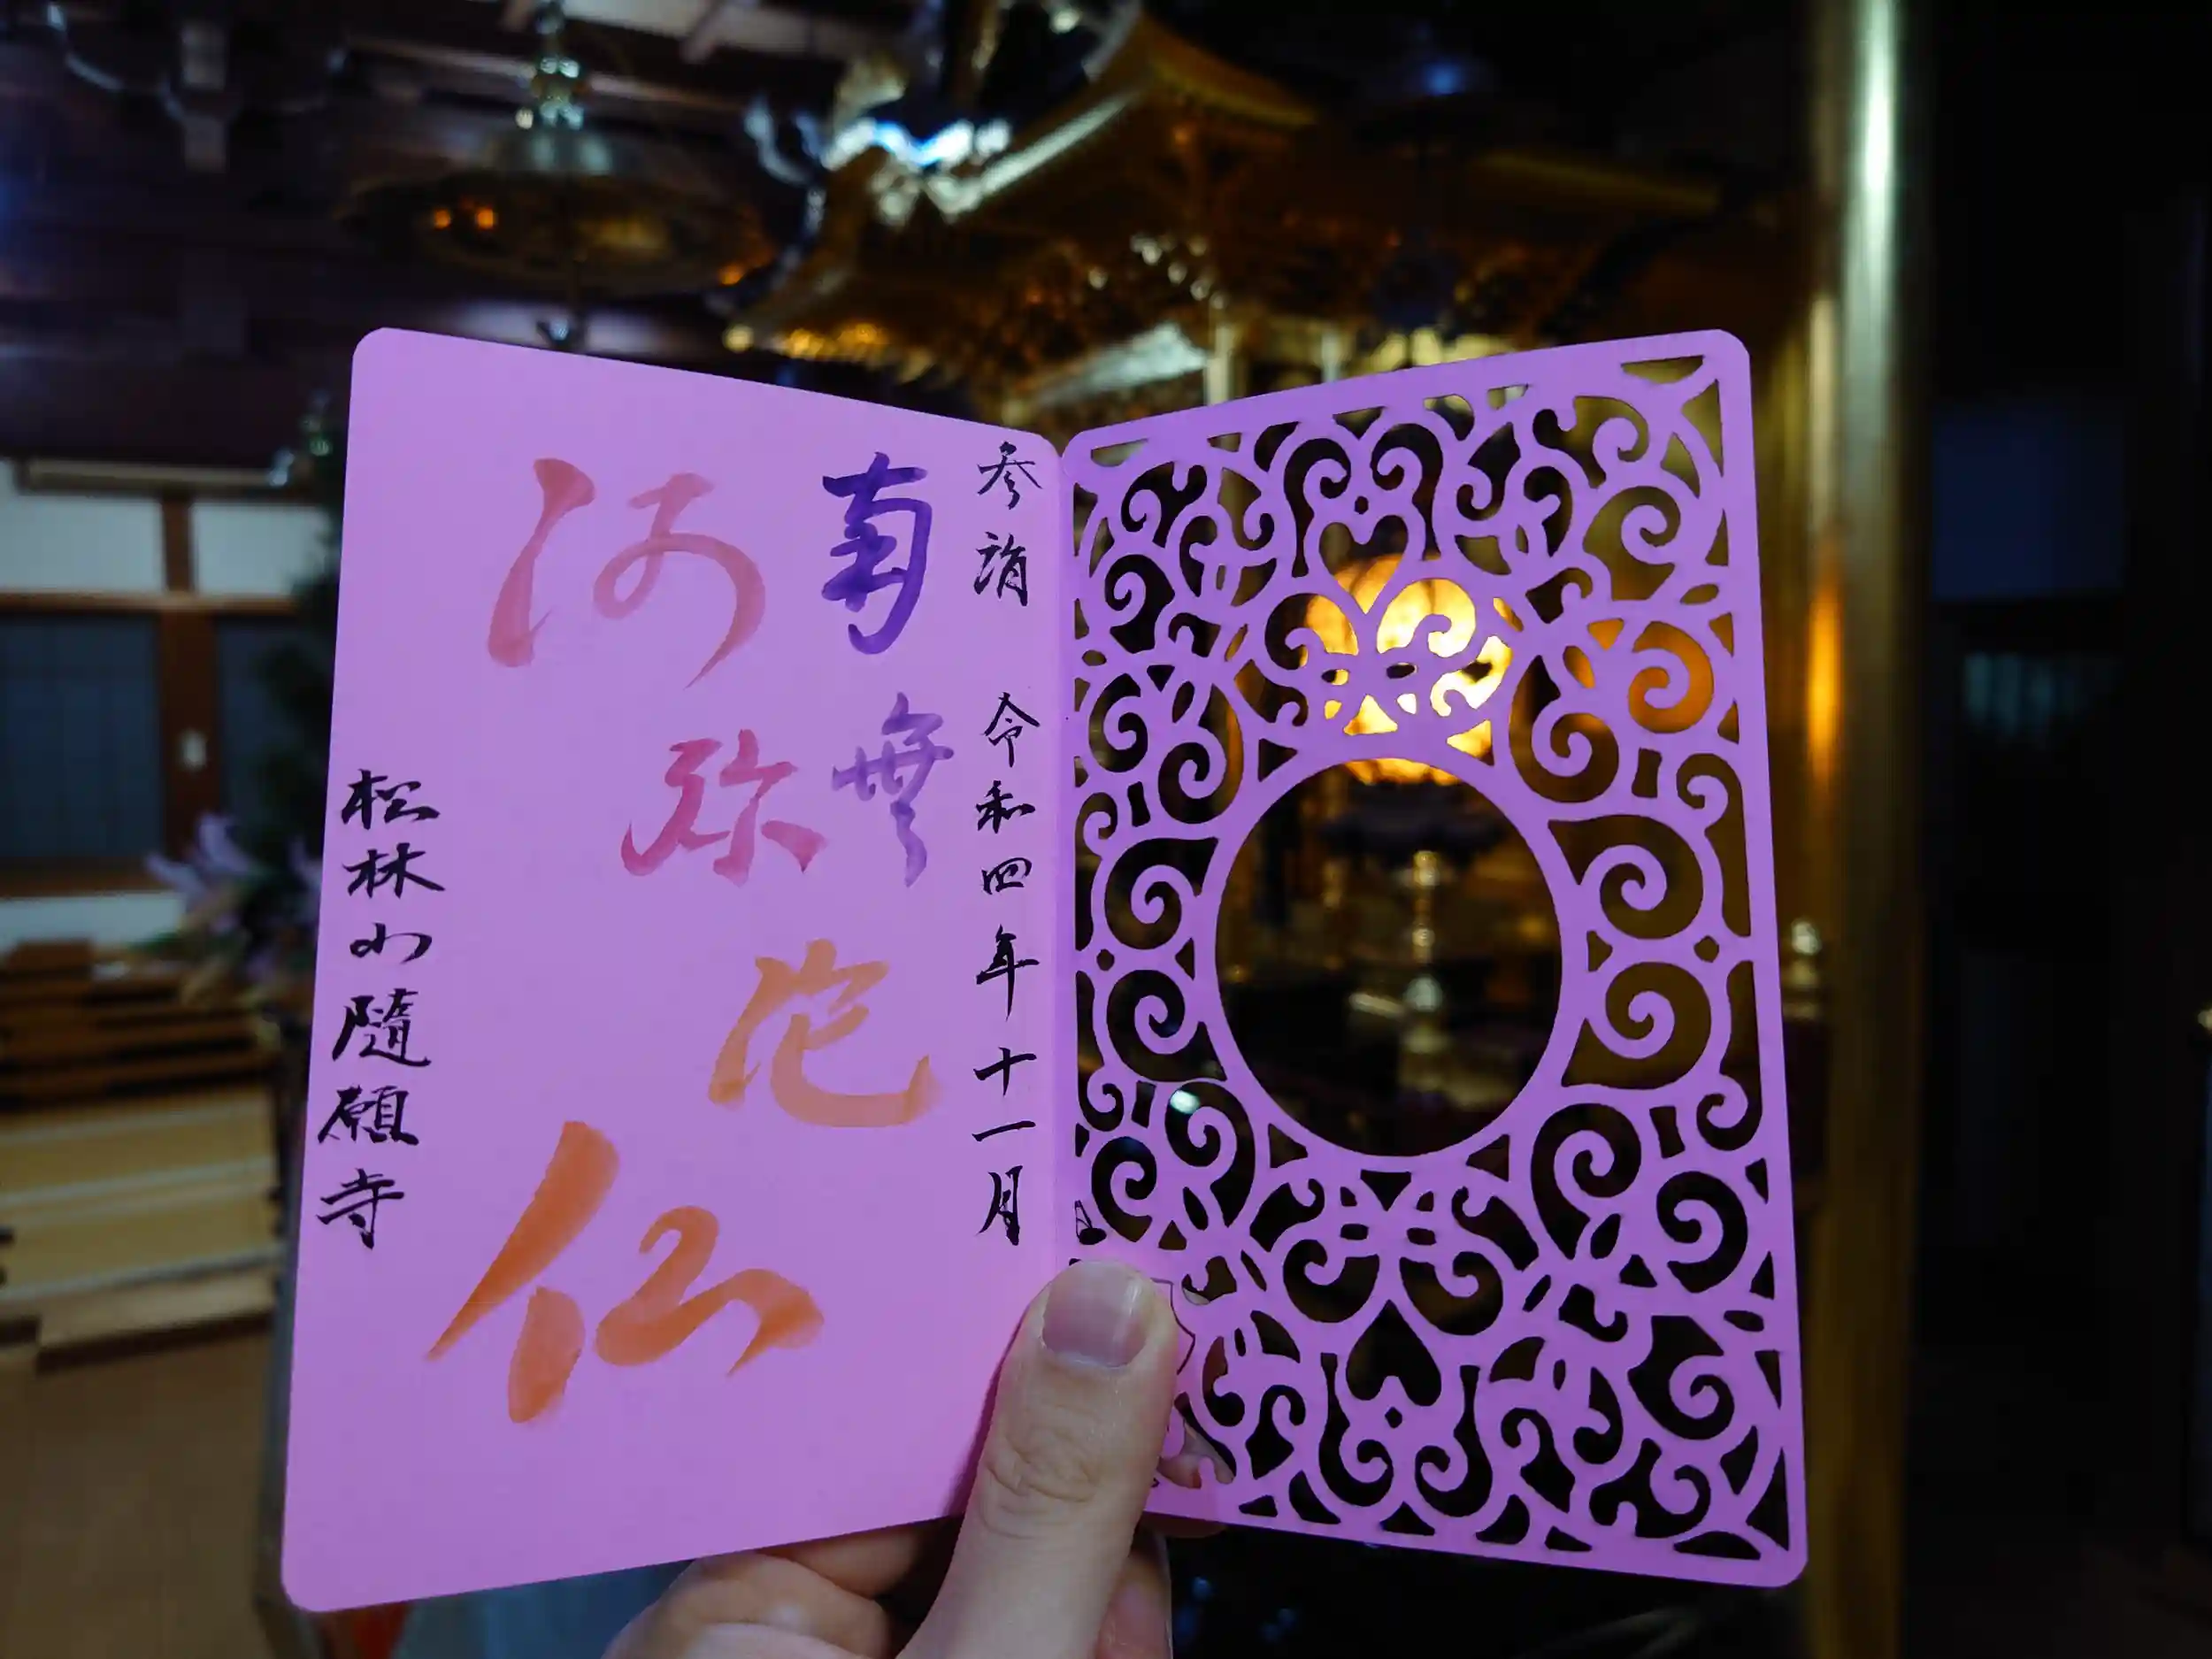 参詣 令和四年十一月
南無
阿弥陀
仏
松林山隨願寺